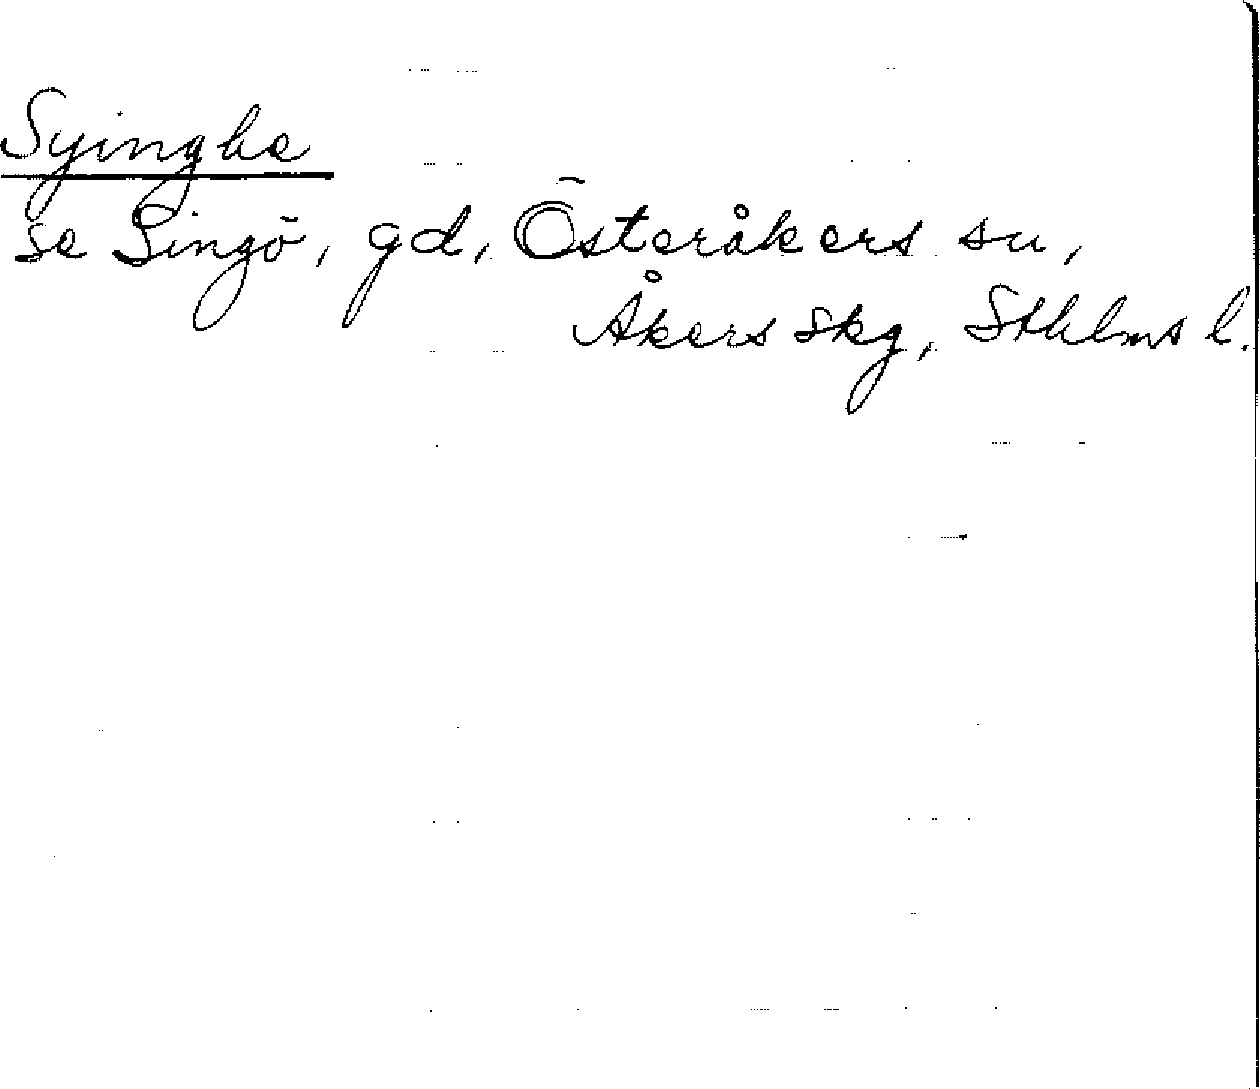 Syinghe
se Singö, gd, Österåkers sn,
Åkers skg, Sthlms l.